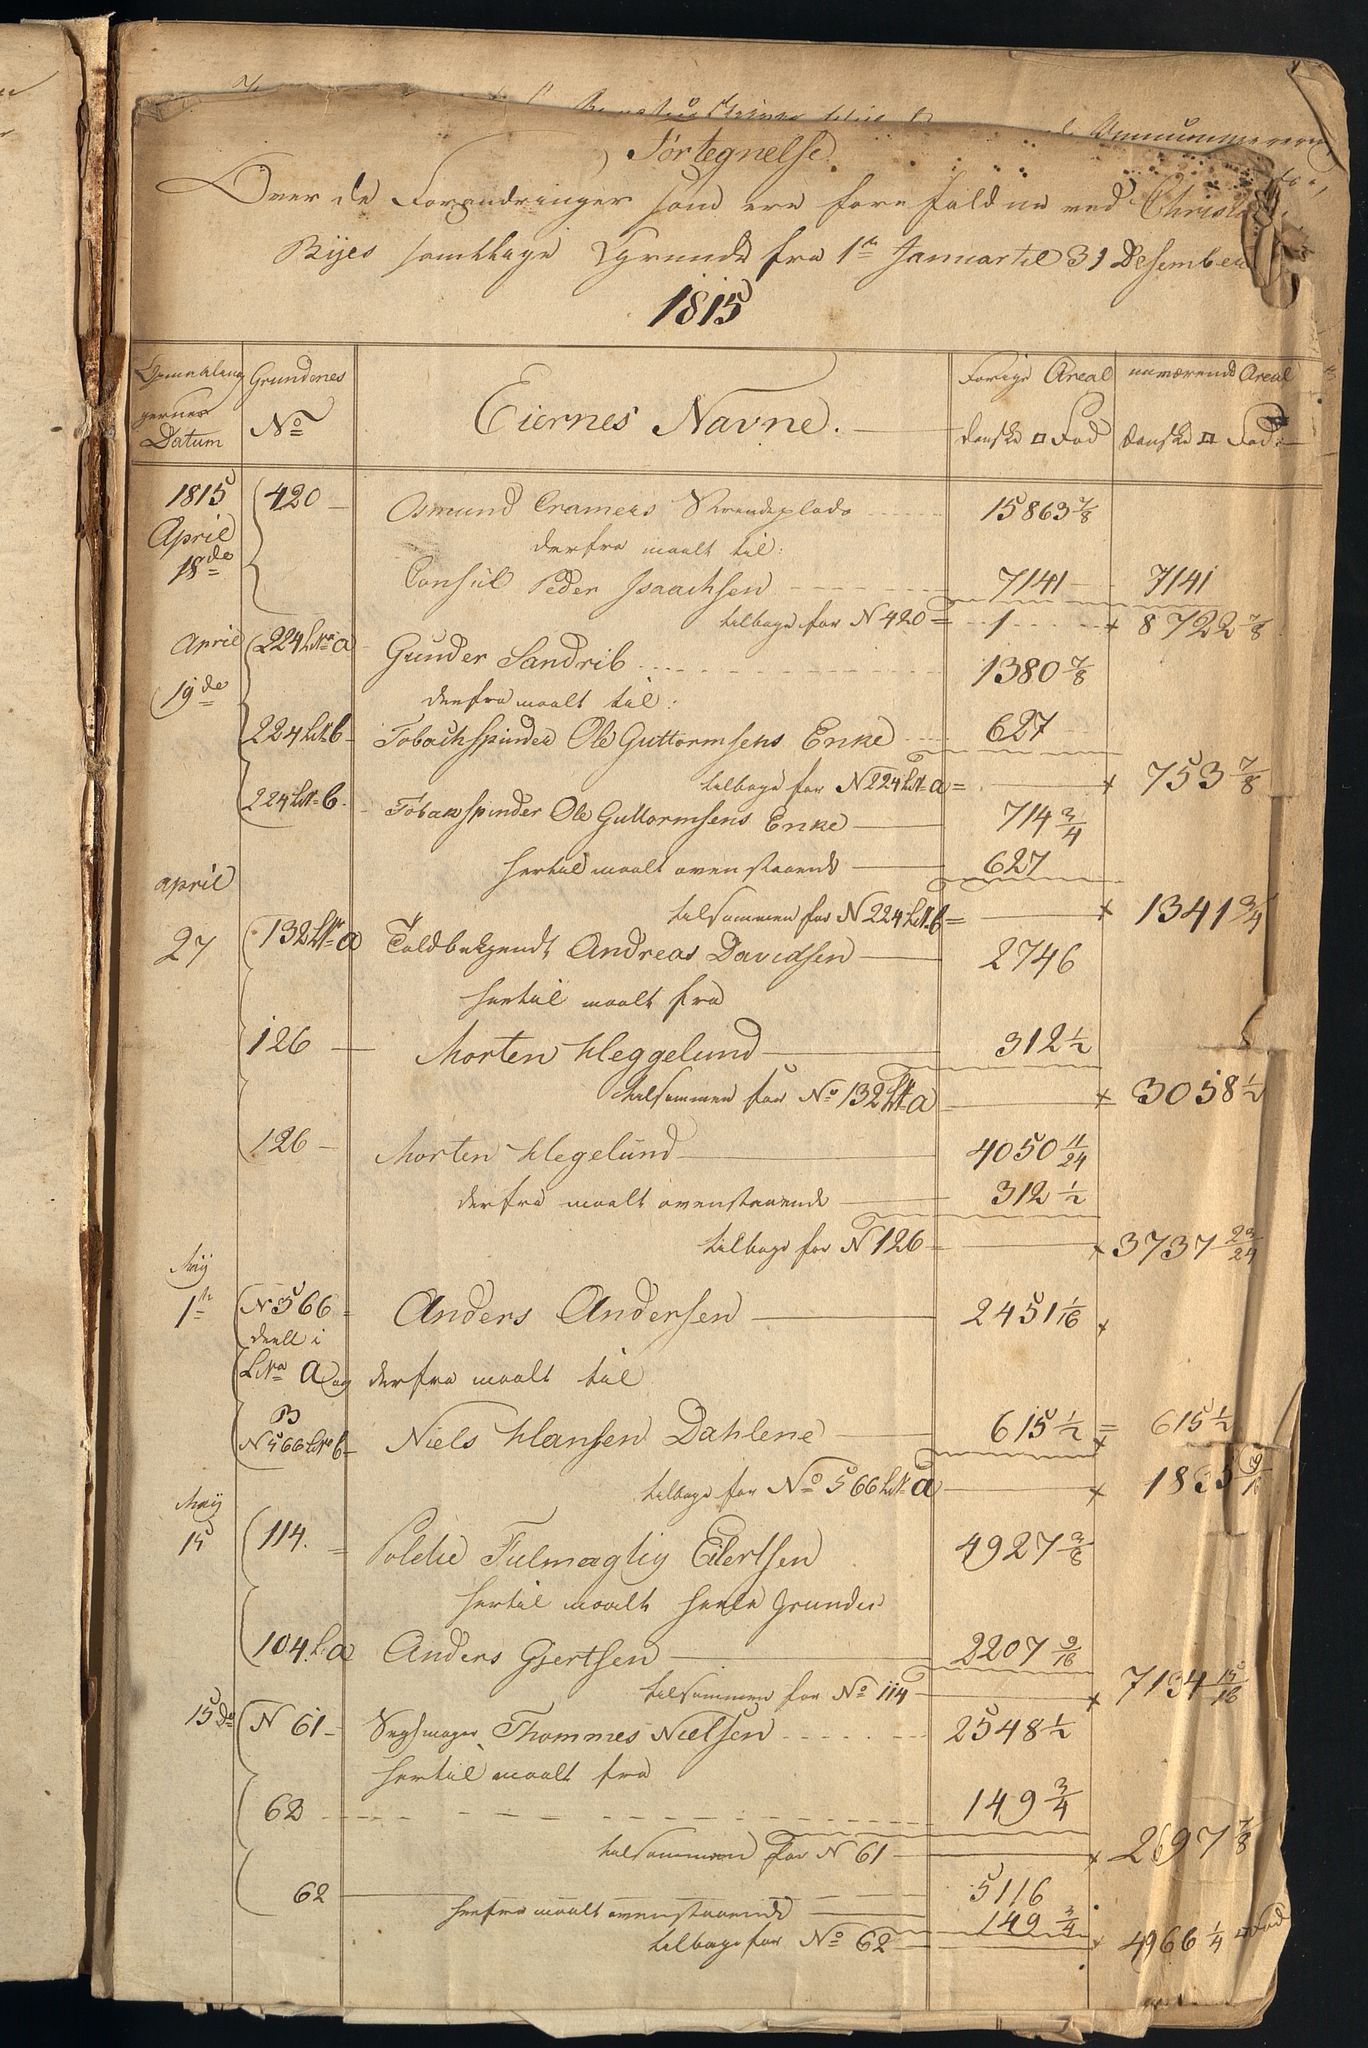 Fortegnelse
Over de Forandringer som ere fore faldne ved Christ
Byes samtlige Grunde fra 1te Januar til 31 Desember
1815
Opmaalingernes Datum | Grundenes No | Eiernes Navne. | Forige Areal danske □ Fod | nuværende Areal danske □ Fod
1815 April 18de | 420 | Osmund Cramers Strandeplads | 15863 7/8
derfra maalt til:
Consul Peder Isaachsen | 7141 | 7141
tilbage for N 420 = | 1 | 8722 7/8
April 19de | 224 Litra a | Gunder Sandrib | 1380 7/8
derfra maalt til:
224 Litr b | Tobachspinder Ole Guttormsens Enke | 627
tilbage for N 224 Litr a = | 753 7/8
224 Litr b. | Tobakspinder Ole Guttormsens Enke | 714 3/4
hertil maalt ovenstaaende | 627
tilsammen for N 224 Litr b = | 1341 3/4
april 27 | 132 Litr a | Toldbetjendt Andreas Davidsen | 2746
hertil maalt fra
126 | Morten Heggelund | 312 1/2
tilsammen for No 132 Litr a | 3058 1/2
126 | Morten Hegelund | 4050 11/24
derfra maalt ovenstaaende | 312 1/2
tilbage for N 126 | 3737 23/24
Maij 1te | N 566 deelt i Litra A og B | Anders Andersen | 2451 1/16
derfra maalt til
N 566 Litr b | Niels Hansen Dahlene | 615 1/2 = | 615 1/2
tilbage for No 566 Litr a | 1835 9/16
Maij 15 | 114. | Politie Fulmægtig Eilertsen | 4927 3/8
hertil maalt heele Grunden
104 L: a | Anders Gjertsen | 2207 9/16
tilsammen for No 114 | 7134 15/16
15 do | N 61 | Seglmager Thommes Nielsen | 2548 1/2
hertil maalt fra
62 | 149 3/4
tilsammen for N 61 | 2697 7/8
62 | 5116
herfra maalt ovenstaaende | 149 3/4
tilbage for No 62 | 4966 1/4 □ Fod